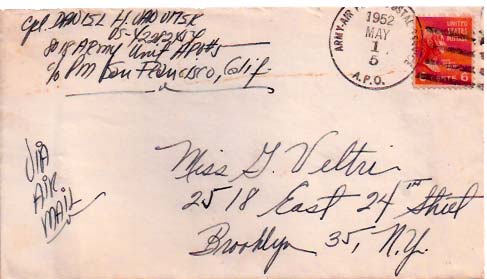 Cpl. DANIEL H.
8018 ARMY Unit APO#5
c/o PM San Francisco, Calif.
ARMY-AIR POSTAL SERVICE
1952
MAY
1
5
A.P.O.
UNITED
STATES
CENTS 6
VIA
AIR
MAIL
Miss G. Veltri
2518 East 24TH Street
Brooklyn 35, N.Y.